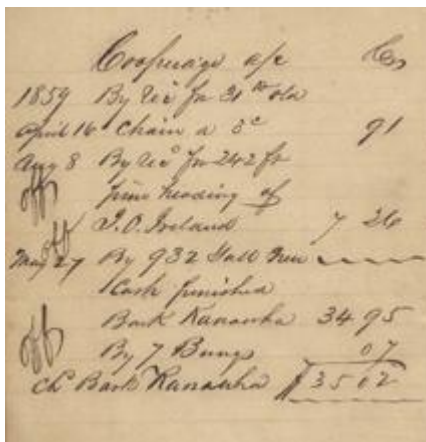 Cooperage a/c Cr
1859 By rec for 31 lb old
April 16 Chain a 3c 91
Aug 8 By rec for 242 ft
pine heading of
J. O. Ireland 7 26
May 27 By 932 Gall
Cash furnished
Bark Kanawha 34 95
By 7 Bungs 07
Ch Bark Kanawha 35 02